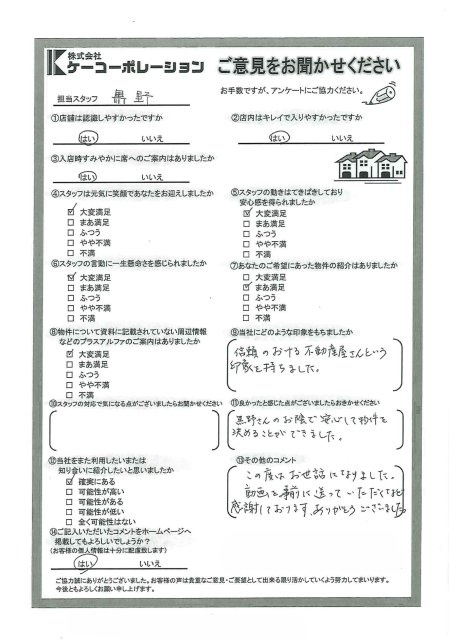 株式会社
ケーコーポレーション ご意見をお聞かせください
担当スタッフ 黒野
お手数ですが、アンケートにご協力ください。
①店舗は認識しやすかったですか
はい いいえ
②店内はキレイで入りやすかったですか
はい いいえ
③入店時すみやかに席へのご案内はありましたか
はい いいえ
④スタッフは元気に笑顔であなたをお迎えしましたか
☑ 大変満足
□ まあ満足
□ ふつう
□ やや不満
□ 不満
⑤スタッフの動きはてきぱきしており
安心感を得られましたか
☑ 大変満足
□ まあ満足
□ ふつう
□ やや不満
□ 不満
⑥スタッフの言動に一生懸命さを感じられましたか
☑ 大変満足
□ まあ満足
□ ふつう
□ やや不満
□ 不満
⑦あなたのご希望にあった物件の紹介はありましたか
□ 大変満足
☑ まあ満足
□ ふつう
□ やや不満
□ 不満
⑧物件について資料に記載されていない周辺情報
などのプラスアルファのご案内はありましたか
☑ 大変満足
□ まあ満足
□ ふつう
□ やや不満
□ 不満
⑨当社にどのような印象をもちましたか
信頼のおける不動産屋さんという
印象を持ちました。
⑩スタッフの対応で気になる点がございましたらお聞かせください
⑪良かったと感じた点がございましたらおきかせください
黒野さんのお陰で安心して物件を
決めることができました。
⑫当社をまた利用したいまたは
知り合いに紹介したいと思いましたか
☑ 確実にある
□ 可能性が高い
□ 可能性がある
□ 可能性が低い
□ 全く可能性はない
⑬その他のコメント
この度はお世話になりました。
動画を事前に送っていただくなど
感謝しております。ありがとうございました
⑭ご記入いただいたコメントをホームページへ
掲載してもよろしいでしょうか?
(お客様の個人情報は十分に配慮致します)
はい いいえ
ご協力誠にありがとうございました。お客様の声は貴重なご意見・ご要望として出来る限り活かしていくよう努力してまいります。
今後ともよろしくお願い申し上げます。